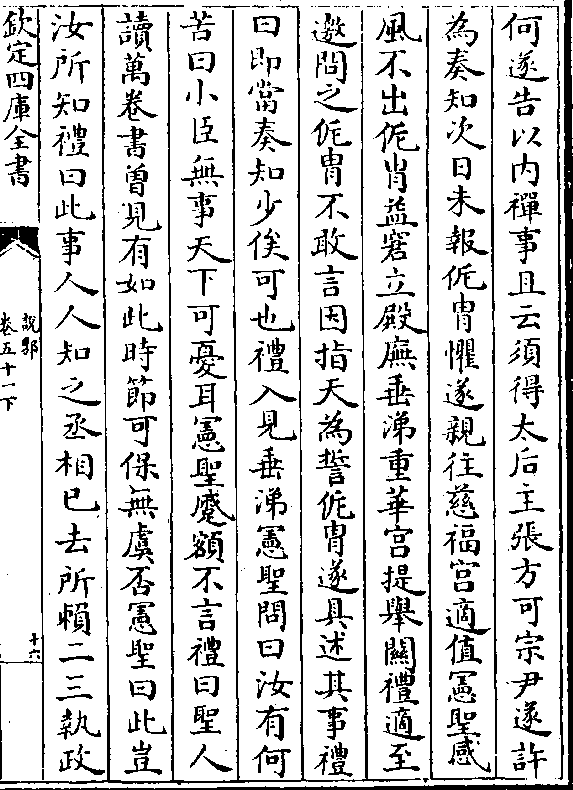 何遂告以内禪事且云須得太后主張方可宗尹遂許
為奏知次日未報侂胄懼遂親往慈福宫適值憲聖感
風不出侂胄益窘立殿廡垂涕重華宫提舉關禮適至
邀問之侂胄不敢言因指天為誓侂胄遂具述其事禮
曰即當奏知少俟可也禮入見垂涕憲聖問曰汝有何
苦曰小臣無事天下可憂耳憲聖蹙額不言禮曰聖人
讀萬卷書曽見有如此時節可保無虞否憲聖曰此豈
汝所知禮曰此事人人知之丞相已去所賴二三執政
欽定四庫全書
說郛
卷五十一下
十六